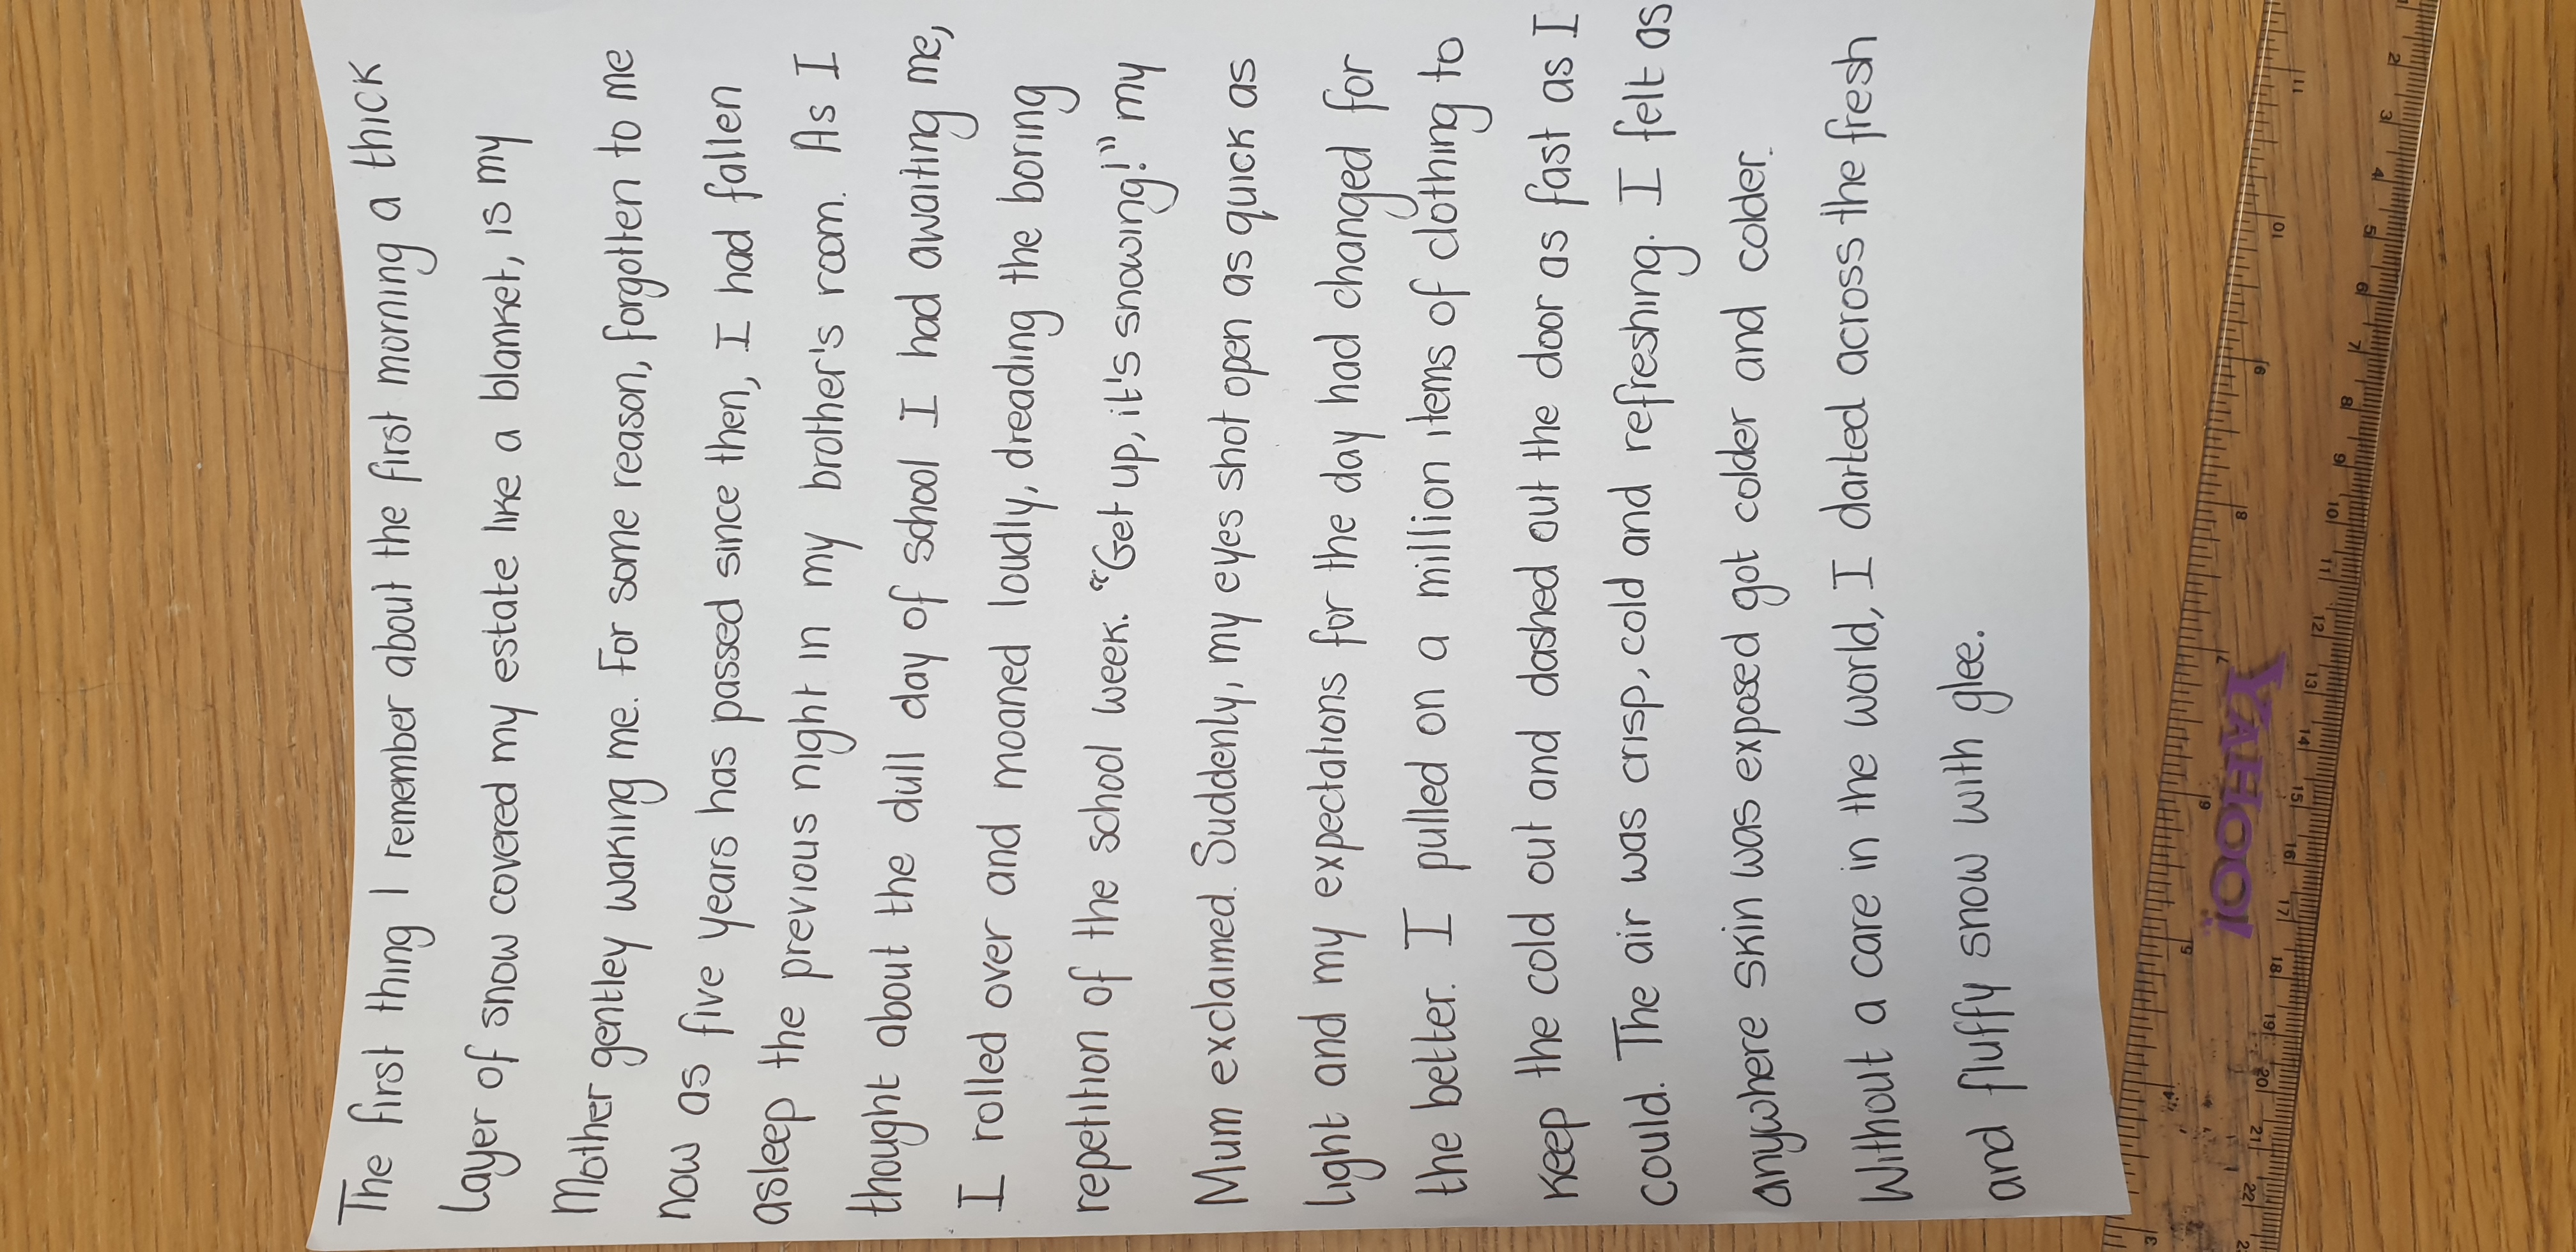 The first thing I remember about the first morning a thick
layer of snow covered my estate like a blanket, is my
Mother gentley waking me. For some reason, forgotten to me
now as five years has passed since then, I had fallen
asleep the previous night in my brother's room. As I
thought about the dull day of school I had awaiting me,
I rolled over and moaned loudly, dreading the boring
repetition of the school week. "Get up, it's snowing!" my
Mum exclaimed. Suddenly, my eyes shot open as quick as
light and my expectations for the day had changed for
the better. I pulled on a million items of clothing to
keep the cold out and dashed out the door as fast as I
could. The air was crisp, cold and refreshing. I felt as
anywhere skin was exposed got colder and colder.
Without a care in the world, I darted across the fresh
and fluffy snow with glee.
3 4 5 6 7 8 9 10 11
YAHOO!
23 22 21 20 19 18 17 16 15 14 13 12 11 10 9 8 7 6 5 4 3 2 1